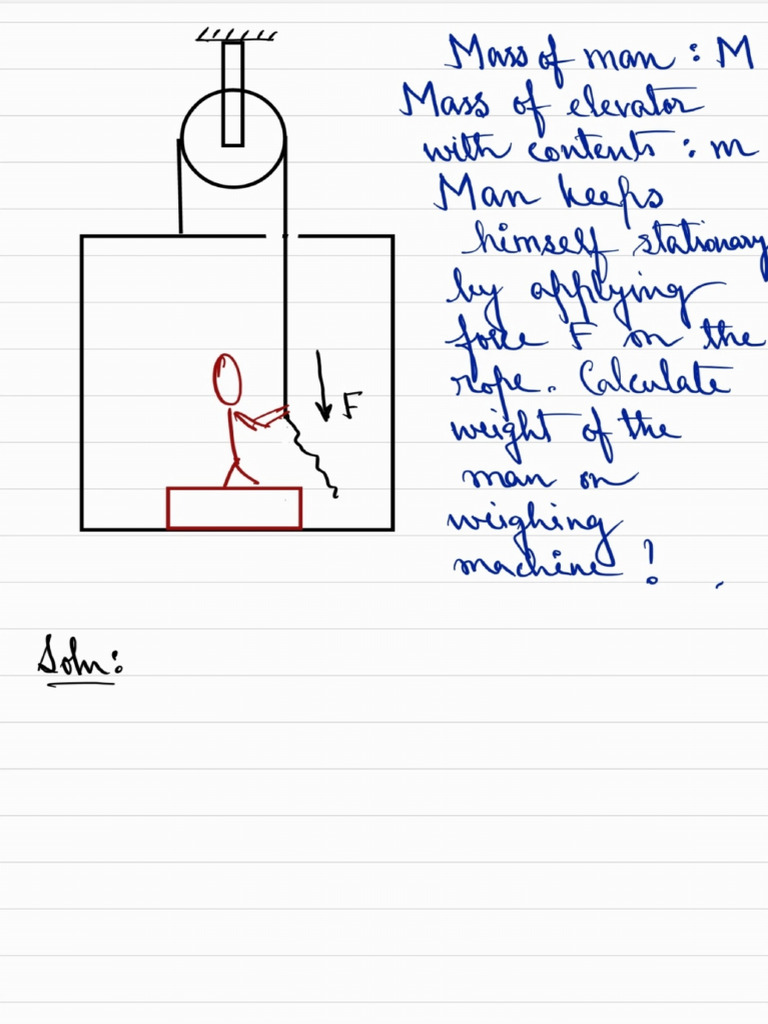 Mass of man : M
Mass of elevator
with contents : m
Man keeps
himself stationary
by applying
force F on the
rope. Calculate
weight of the
man on
weighing
machine !
F
Soln: